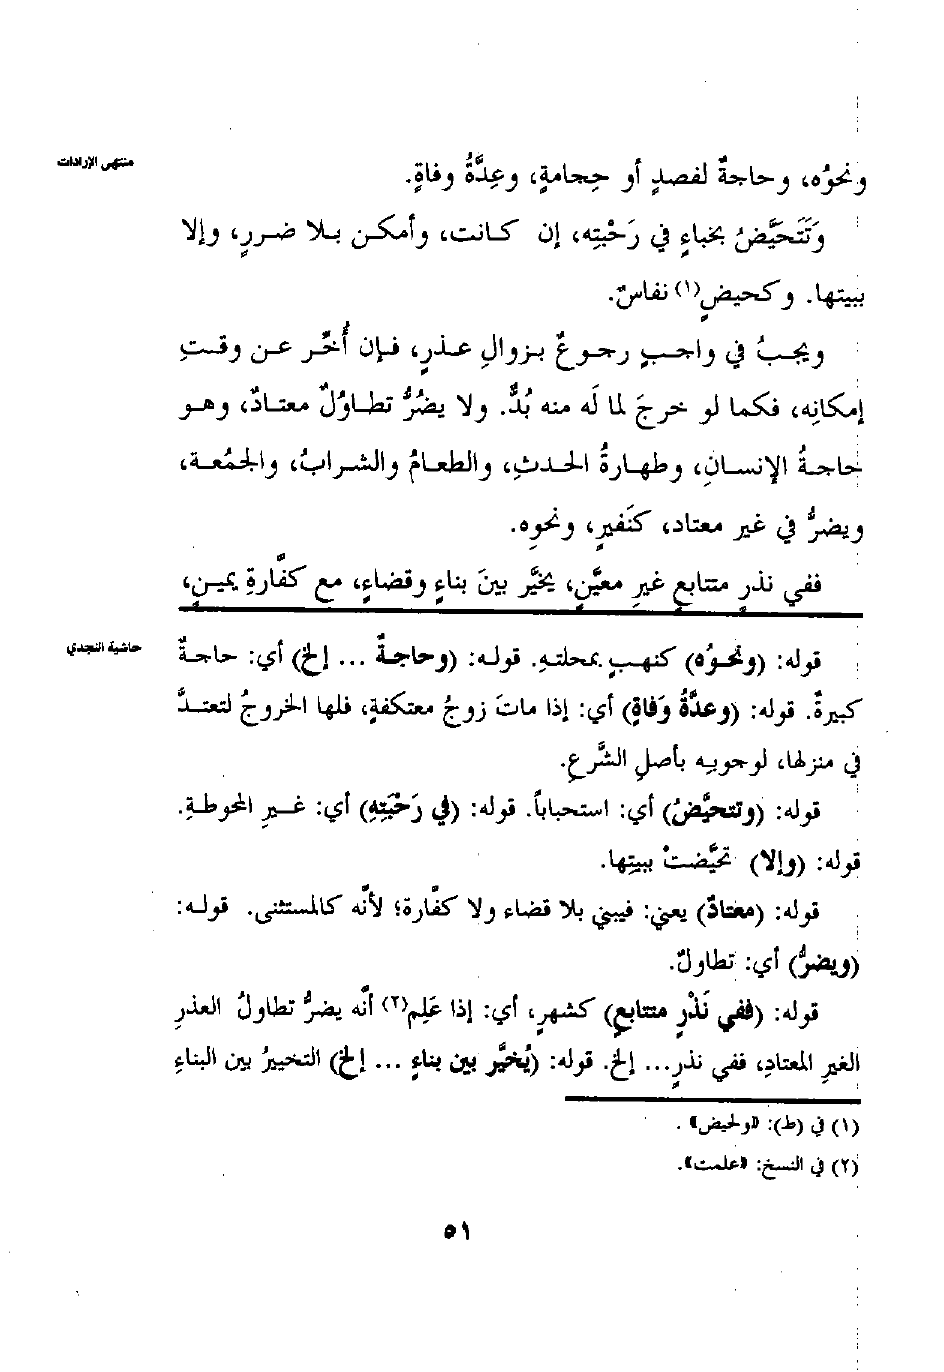 منتهى الإرادات
ونحوُه، وحاجةٌ لفصدٍ أو حِجامةٍ، وعِدَّةُ وفاةٍ.
وَتَتَحَيَّضُ بخباءٍ في رَحْبتِه، إن كانت، وأمكن بلا ضررٍ، وإلا
ببيتها. وكحيضٍ(١) نفاسٌ.
ويجبُ في واجبٍ رجوعٌ بزوالِ عذرٍ، فإن أُخِّر عن وقتِ
إمكانِه، فكما لو خرجَ لما لَه منه بُدٌّ. ولا يضرُّ تطاوُلٌ معتادٌ، وهو
حاجةُ الإنسانِ، وطهارةُ الحدثِ، والطعامُ والشرابُ، والجمُعة،
ويضرُّ في غير معتاد، كنَفيرٍ، ونحوِه.
ففي نذرٍ متتابعٍ غيرِ معيَّنٍ، يخيَّر بينَ بناءٍ وقضاءٍ، مع كفَّارةِ يمينٍ،
حاشية النجدي
قوله: (ونحوُه) كنهبٍ بمحلتهِ. قوله: (وحاجةٌ ... إلخ) أي: حاجةٌ
كبيرةٌ. قوله: (وعدَّةُ وَفاةٍ) أي: إذا ماتَ زوجُ معتكفةٍ، فلها الخروجُ لتعتدَّ
في منزلها، لوجوبِه بأصلِ الشَّرعِ.
قوله: (وتتحيَّضُ) أي: استحباباً. قوله: (في رَحْبَتِهِ) أي: غيرِ المحوطةِ.
قوله: (وإلا) تحيَّضتْ ببيتِها.
قوله: (معتادٌ) يعني: فيبني بلا قضاء ولا كفَّارة؛ لأنَّه كالمستثنى. قوله:
(ويضرُّ) أي: تطاولٌ.
قوله: (ففي نَذْرٍ متتابعٍ) كشهرٍ، أي: إذا عَلِم(٢) أنَّه يضرُّ تطاولُ العذرِ
الغيرِ المعتادِ، ففي نذرٍ... إلخ. قوله: (يُخيَّر بين بناءٍ ... إلخ) التخييرُ بين البناءِ
(١) في (ط): «ولحيض» .
(٢) في النسخ: «علمت».
٥١